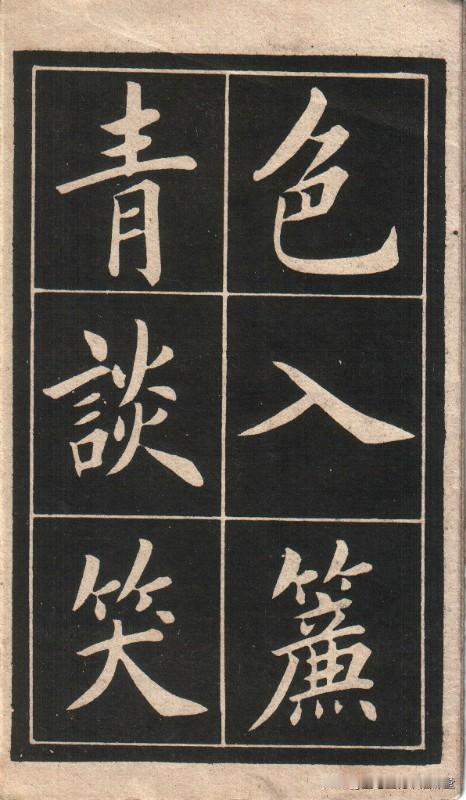 色入簾
青談笑